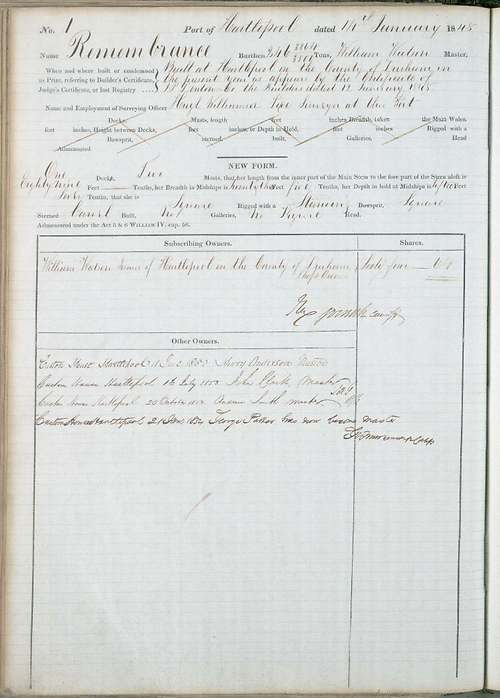 No. 1 Port of Hartlepool dated 14th January 1845
Name Remembrance Burthen 346 Tons, William Watson Master,
When and where built or condemned Built at Hartlepool in the County of Durham in
as Prize, referring to Builder's Certificate, the present Year as appears by the Certificate of
Judge's Certificate, or last Registry the Builders dated 12 January 1845
Name and Employment of Surveying Officer Hugh Tide Surveyor at this Port
Decks, Masts, length feet Inches Breadth, taken the Main Wales
feet inches, Height between Decks, feet inches, or Depth in Hold, feet inches Rigged with a
Bowsprit, sterned, built, Galleries, Head
Admeasured
NEW FORM.
One Decks, Two Masts, that her length from the inner part of the Main Stem to the fore part of the Stern aloft is
Eighty nine Feet Tenths, her Breadth in Midships is Feet five Tenths, her Depth in hold at Midships is Feet
Tenths, that she is Square Rigged with a Standing Bowsprit, Square
Sterned Carvel Built, No Galleries, Head.
Admeasured under the Act 5 & 6 WILLIAM IV. cap. 56.
Subscribing Owners. Shares.
William Watson of Hartlepool in the County of Durham Sixty four 64
Ship Owner
Other Owners.
Custom House Hartlepool 1850 Henry Anderson Master
Custom House Hartlepool July 1853 John Clark Master
Custom House Hartlepool 20 October 1853 Smith master
Custom House Hartlepool 21 1854 George has now become master